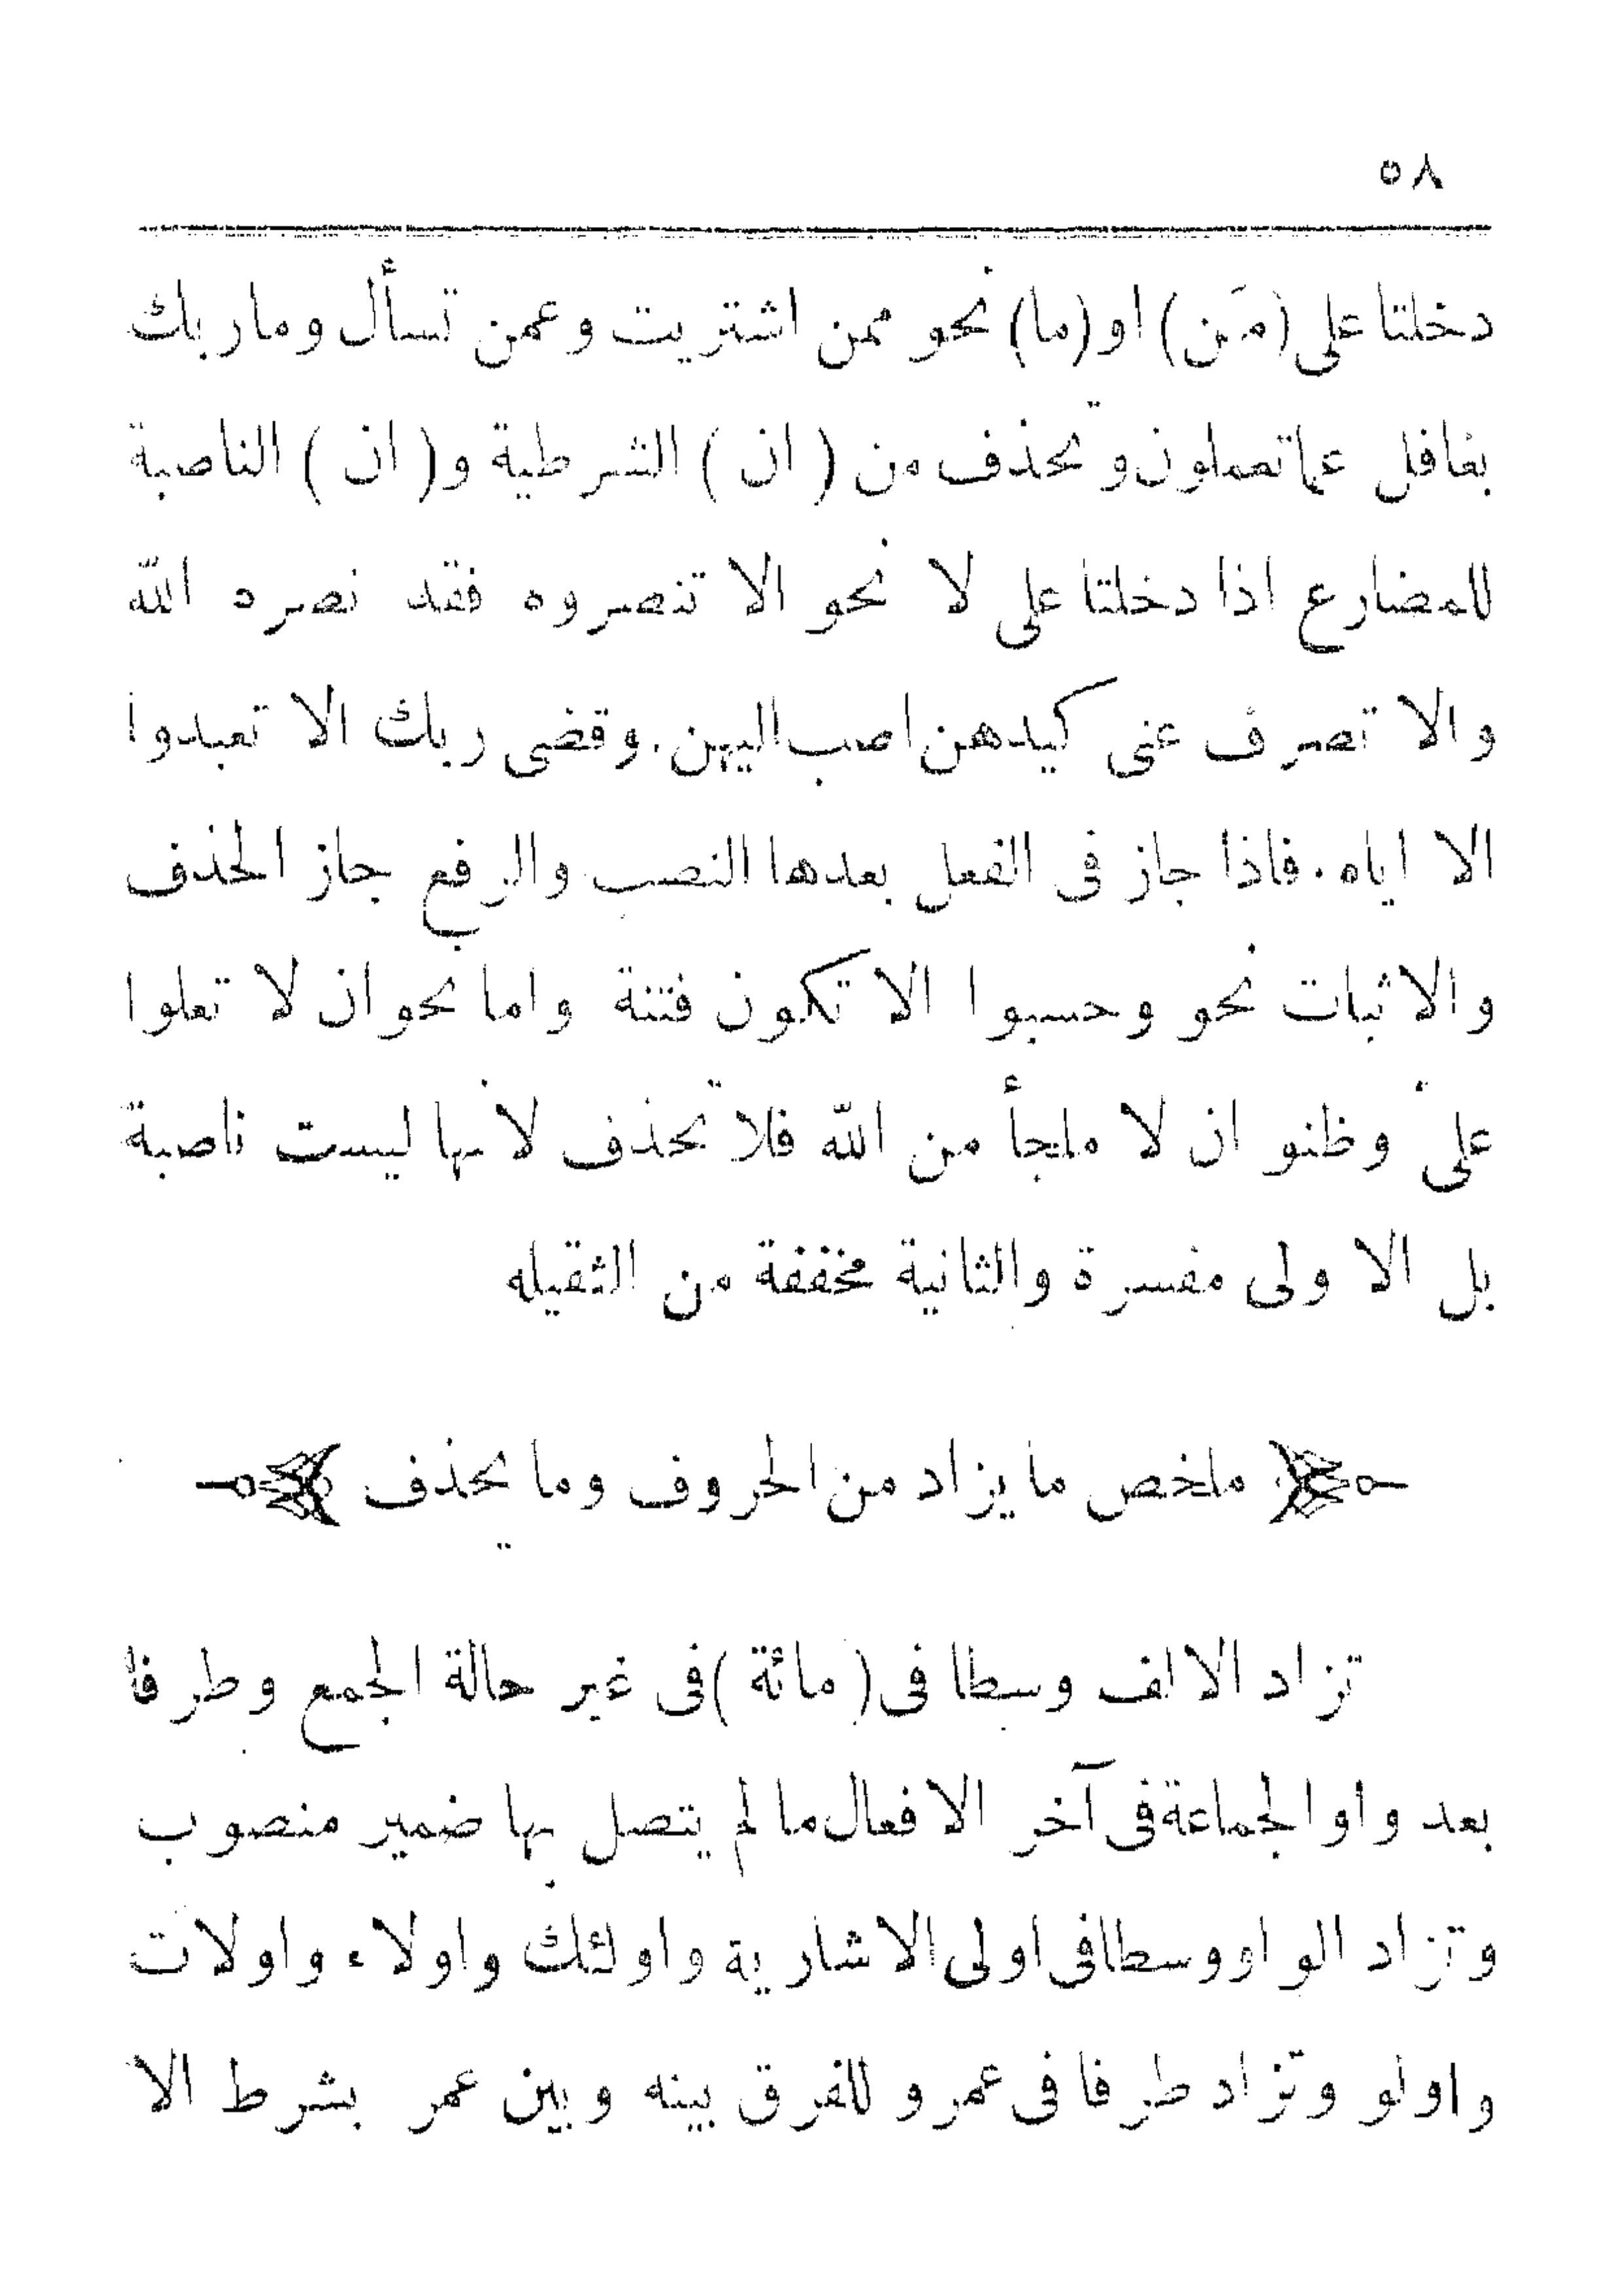 ٥٨
دخلتا على (مَن) او (ما) نحو ممن اشتريت وعمن تسأل وما ربك
بغافل عما تعملون وتحذف من ( ان ) الشرطية و( ان ) الناصبة
للمضارع اذا دخلتا على لا نحو الا تنصروه فقد نصره الله
والا تصرف عنى كيدهن اصب اليهن. وقضى ربك الا تعبدوا
الا اياه. فاذا جاز فى الفعل بعدها النصب والرفع جاز الحذف
والاثبات نحو وحسبوا الا تكون فتنة واما نحو ان لا تعلوا
علىّ وظنو ان لا ملجأ من الله فلا تحذف لانها ليست ناصبة
بل الاولى مفسرة والثانية مخففة من الثقيله
ملخص ما يزاد من الحروف وما يحذف
تزاد الالف وسطا فى ( مائة ) فى غير حالة الجمع وطرفا
بعد واو الجماعة فى آخر الافعال ما لم يتصل بها ضمير منصوب
وتزاد الواو وسطا فى اولى الاشارية واولئك واولاء واولات
واولو وتزاد طرفا فى عمرو للفرق بينه وبين عمر بشرط الا